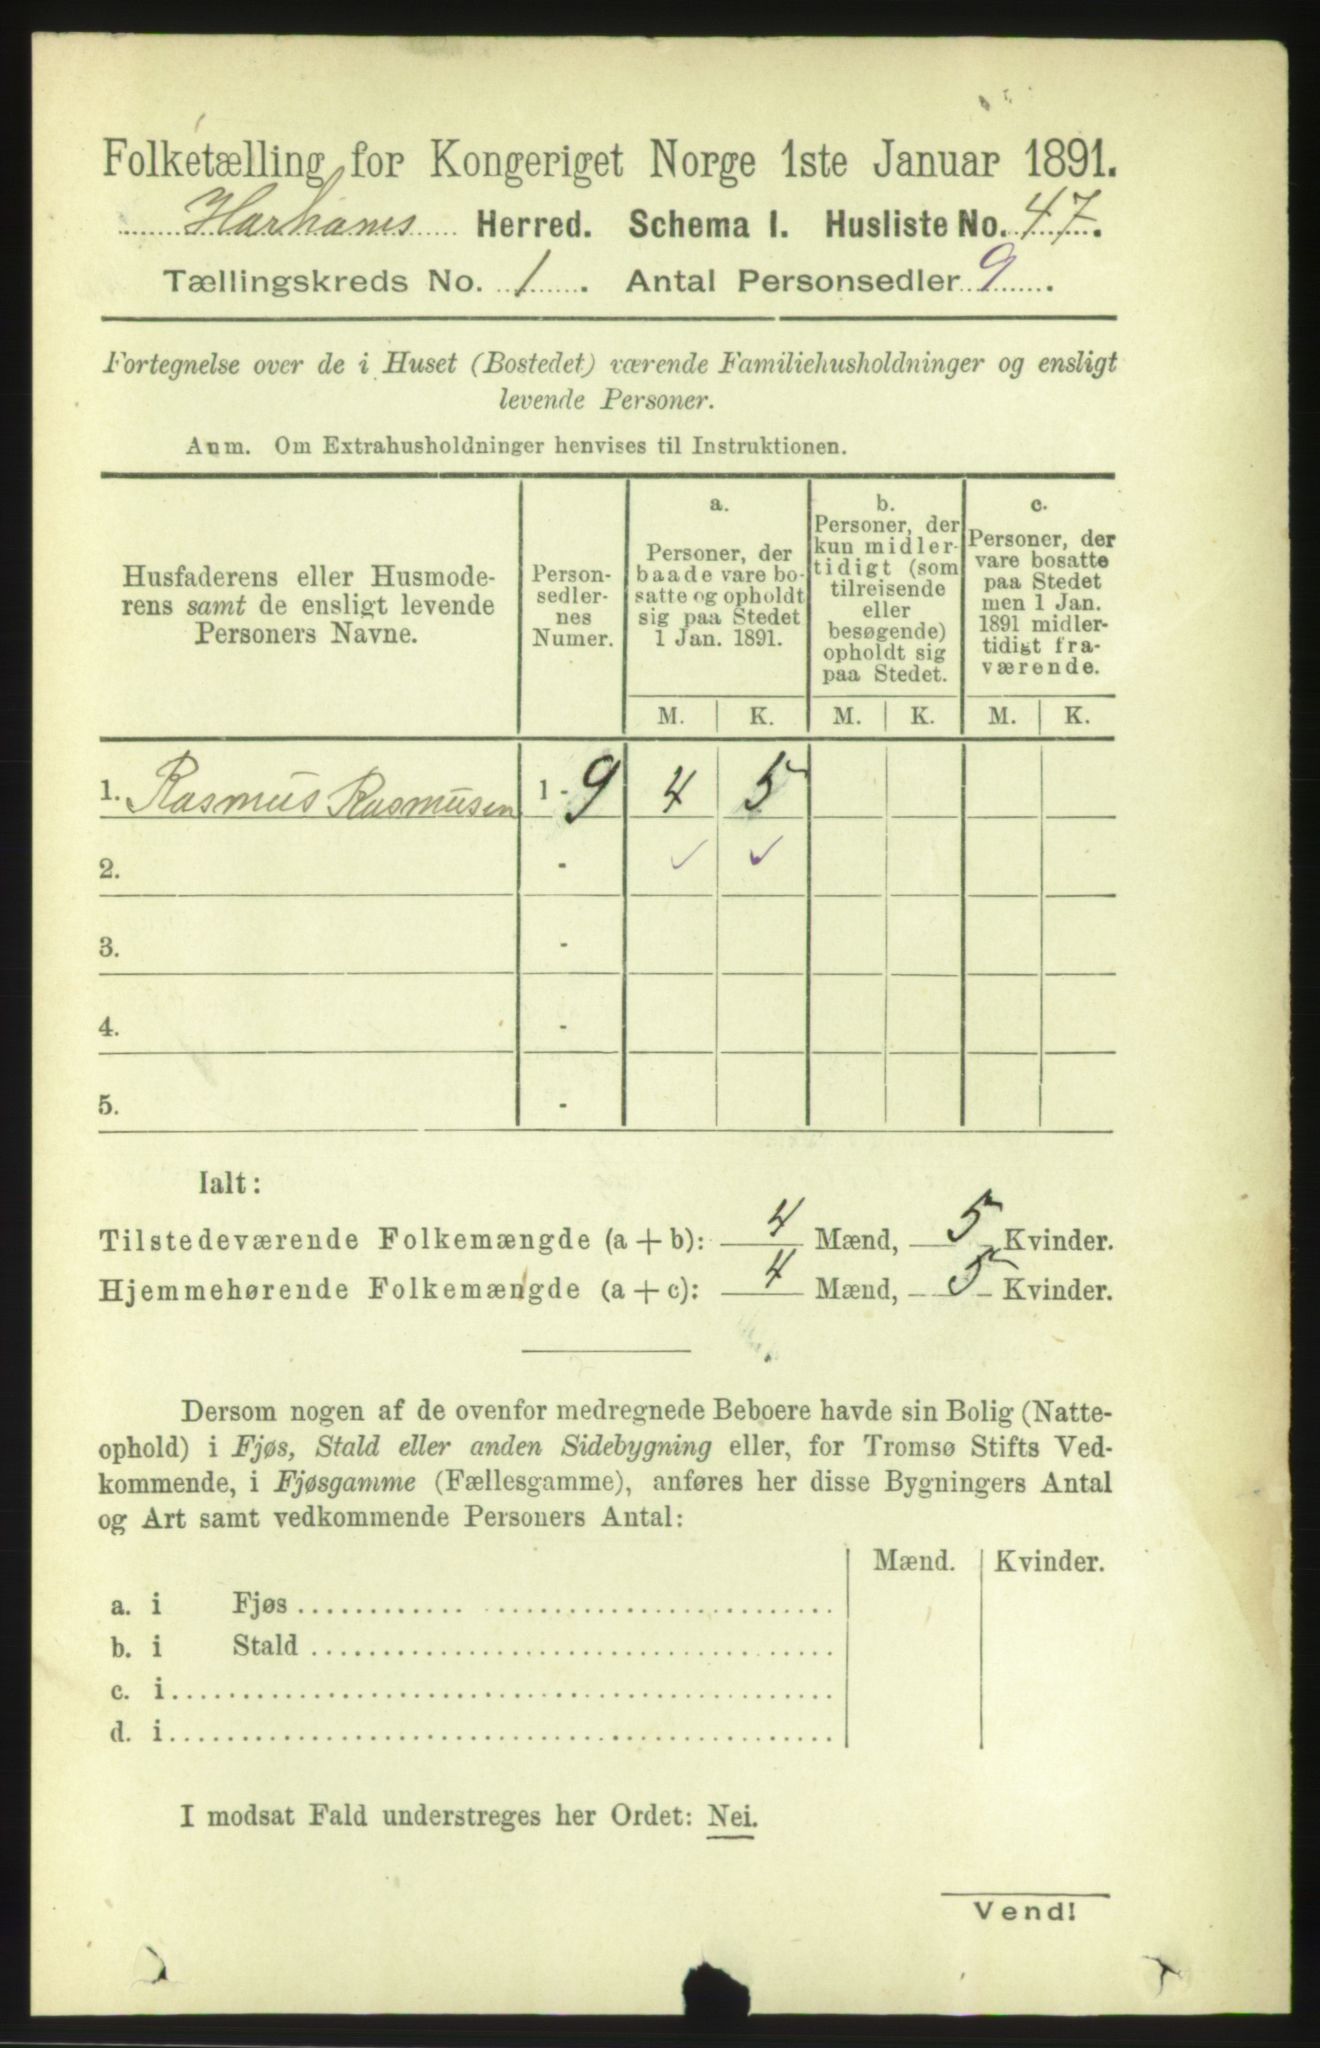 Folketælling for Kongeriget Norge 1ste Januar 1891.
Harhams Herred. Schema I. Husliste No. 47.
Tællingskreds No. 1. Antal Personsedler 9.
Fortegnelse over de i Huset (Bostedet) værende Familiehusholdninger og ensligt
levende Personer.
Anm. Om Extrahusholdninger henvises til Instruktionen.
Husfaderens eller Husmoderens samt de ensligt levende Personers Navne.
Person-
sedler-
nes
Numer.
a.
Personer, der
baade vare bo-
satte og opholdt
sig paa Stedet
1 Jan. 1891.
b.
Personer, der
kun midler-
tidigt (som
tilreisende
eller
besøgende)
opholdt sig
paa Stedet.
c.
Personer, der
vare bosatte
paa Stedet
men 1 Jan.
1891 midler-
tidigt fra-
værende.
M. K. M. K. M. K.
1. Rasmus Rasmusen 1 - 9 4 5
2. - ✓ ✓
3. -
4. -
5. -
Ialt:
Tilstedeværende Folkemængde (a + b): 4 Mænd, 5 Kvinder.
Hjemmehørende Folkemængde (a + c): 4 Mænd, 5 Kvinder.
Dersom nogen af de ovenfor medregnede Beboere havde sin Bolig (Natte-
ophold) i Fjøs, Stald eller anden Sidebygning eller, for Tromsø Stifts Ved-
kommende, i Fjøsgamme (Fællesgamme), anføres her disse Bygningers Antal
og Art samt vedkommende Personers Antal:
Mænd. Kvinder.
a. i Fjøs
b. i Stald
c. i
d. i
I modsat Fald understreges her Ordet: Nei.
Vend!